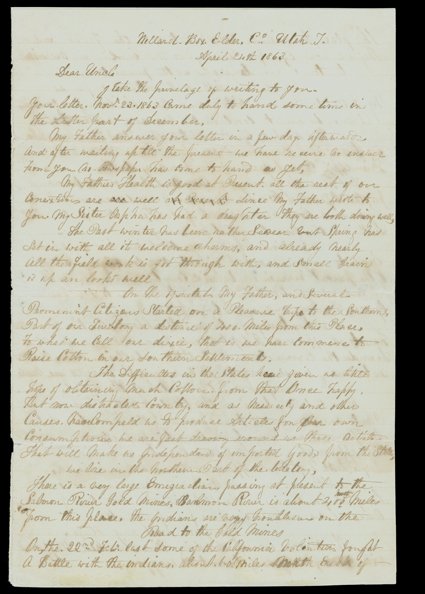 Willard. Box Elder. Co Utah T.
April 24th 1863
Dear Uncle
I take the privalage of writing to you.
Your letter. Novr 23. 1863 Came duly to hand some time in
the Latter part of December.
My Father answer your letter in a few days afterwards
and after waiting up till the present we have receive no answer
from you no has come to hand as yet.
My Fathers Health is good at Present. all the rest of our
Connections are all well Since My Father wrote to
you My Sister has had a daughter they are both doing well,
The Past winter has been rather Severe but Spring has
Set in with all it welcome charms, and already nearly
All the field work is got through with, and Small Grain
is up an looks well
On the My Father, and Several
Prominent Citizens Started on a Pleasure trip to the Southern,
Part of our Territory a distance of 400 Miles from this Place,
to what we call our dixie, that is we have commence to
Raise Cotton in our Southern Settlements.
The Difficultes in the States have given us little
hopes of obtaining much Cotton from that Once Happy,
that now Country, and as Necesity and other
Causes has us to produce Articles for our own
Consumption we are fast drawing around us those Articles
that will make us Independent of imported Goods from the States,
we live in the Northern Part of the Valley,
There is a very large Emigration passing at present to the
River Gold Mines, Salmon River is about 400 Miles
from this place, the Indians are very troublesome on the
Road to the Gold Mines
On the. 22nd Feb. last some of the Volunteers fought
A Battle with the indians about Miles North of